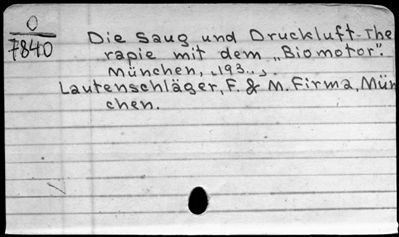 O
7840
Die Saug und Druckluft-The
rapie mit dem „Biomotor“.
München, „193..„.
Lautenschläger, F. & M. Firma, Mün
chen.